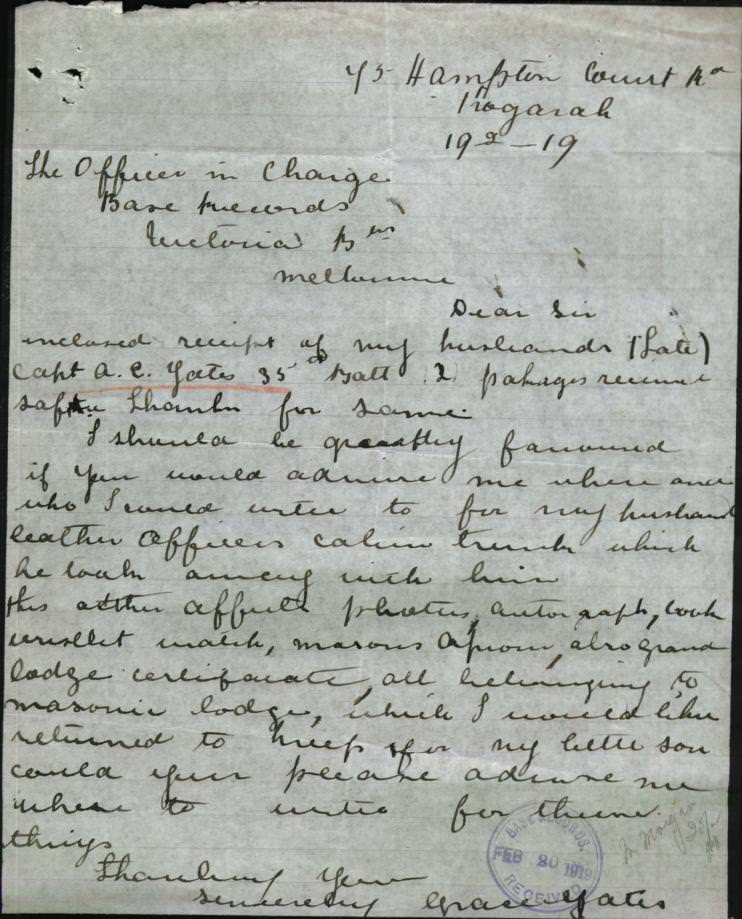 75 Hampton Court Rd
Kogarah
19-2-19
The Officer in Charge
Base Records
Victoria Bks
Melbourne
Dear Sir
inclosed receipt of my husbands (Late)
Capt A. C. Yates 35th Batt 2 pakages
safe Thanks for same.
I should be greatly favoured
if you would advise me where and
who I could write to for my husband
leather Officers cabin trunk which
he took among with him
this other affects photos, autograph, book
wristlet watch, masons Apron, also grand
lodge certificate, all belonging to
masonic lodge, which I would like
returned to keep for my little son
could you please advise me
where to write for these
things
Thanking you
sincerely Grace Yates
BASE RECORDS.
FEB 20 1919
RECEIVED